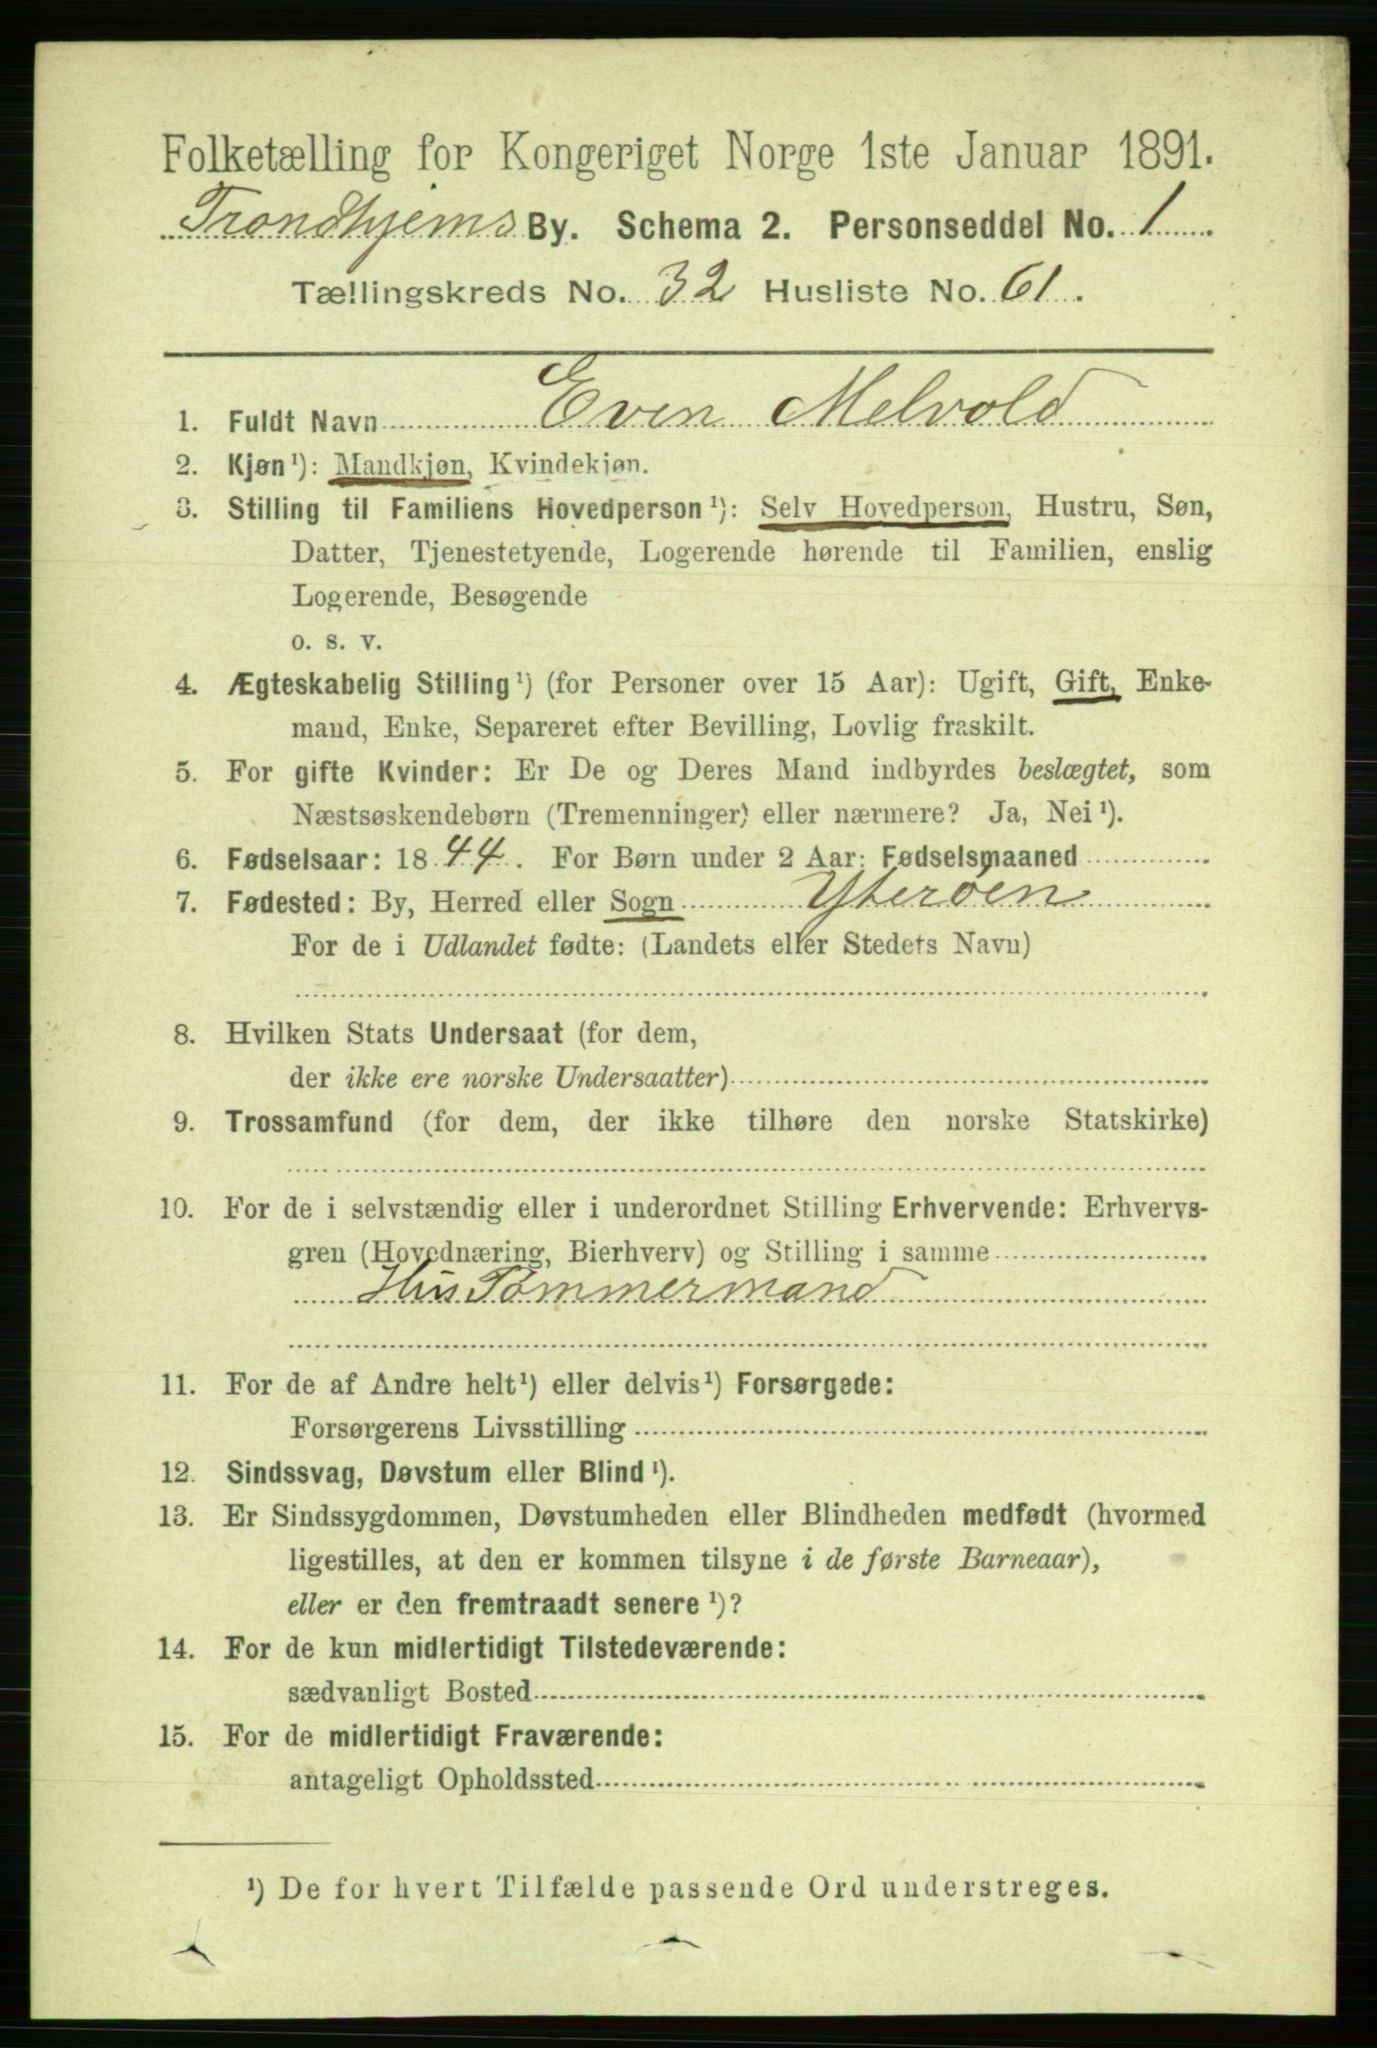 Folketælling for Kongeriget Norge 1ste Januar 1891.
Trondhjems By. Schema 2. Personseddel No. 1
Tællingskreds No. 32 Husliste No. 61.
1. Fuldt Navn Even Melvold
2. Kjøn¹): Mandkjøn, Kvindekjøn.
3. Stilling til Familiens Hovedperson¹): Selv Hovedperson, Hustru, Søn,
Datter, Tjenestetyende, Logerende hørende til Familien, enslig
Logerende, Besøgende
o. s. v.
4. Ægteskabelig Stilling¹) (for Personer over 15 Aar): Ugift, Gift, Enke-
mand, Enke, Separeret efter Bevilling, Lovlig fraskilt.
5. For gifte Kvinder: Er De og Deres Mand indbyrdes beslægtet, som
Næstsøskendebørn (Tremenninger) eller nærmere? Ja, Nei¹).
6. Fødselsaar: 1844. For Børn under 2 Aar: Fødselsmaaned
7. Fødested: By, Herred eller Sogn Yterøen
For de i Udlandet fødte: (Landets eller Stedets Navn)
8. Hvilken Stats Undersaat (for dem,
der ikke ere norske Undersaatter)
9. Trossamfund (for dem, der ikke tilhøre den norske Statskirke)
10. For de i selvstændig eller i underordnet Stilling Erhvervende: Erhvervs-
gren (Hovednæring, Bierhverv) og Stilling i samme
Hus Tømmermand
11. For de af Andre helt¹) eller delvis¹) Forsørgede:
Forsørgerens Livsstilling
12. Sindssvag, Døvstum eller Blind¹).
13. Er Sindssygdommen, Døvstumheden eller Blindheden medfødt (hvormed
ligestilles, at den er kommen tilsyne i de første Barneaar),
eller er den fremtraadt senere¹)?
14. For de kun midlertidigt Tilstedeværende:
sædvanligt Bosted
15. For de midlertidigt Fraværende:
antageligt Opholdssted
¹) De for hvert Tilfælde passende Ord understreges.